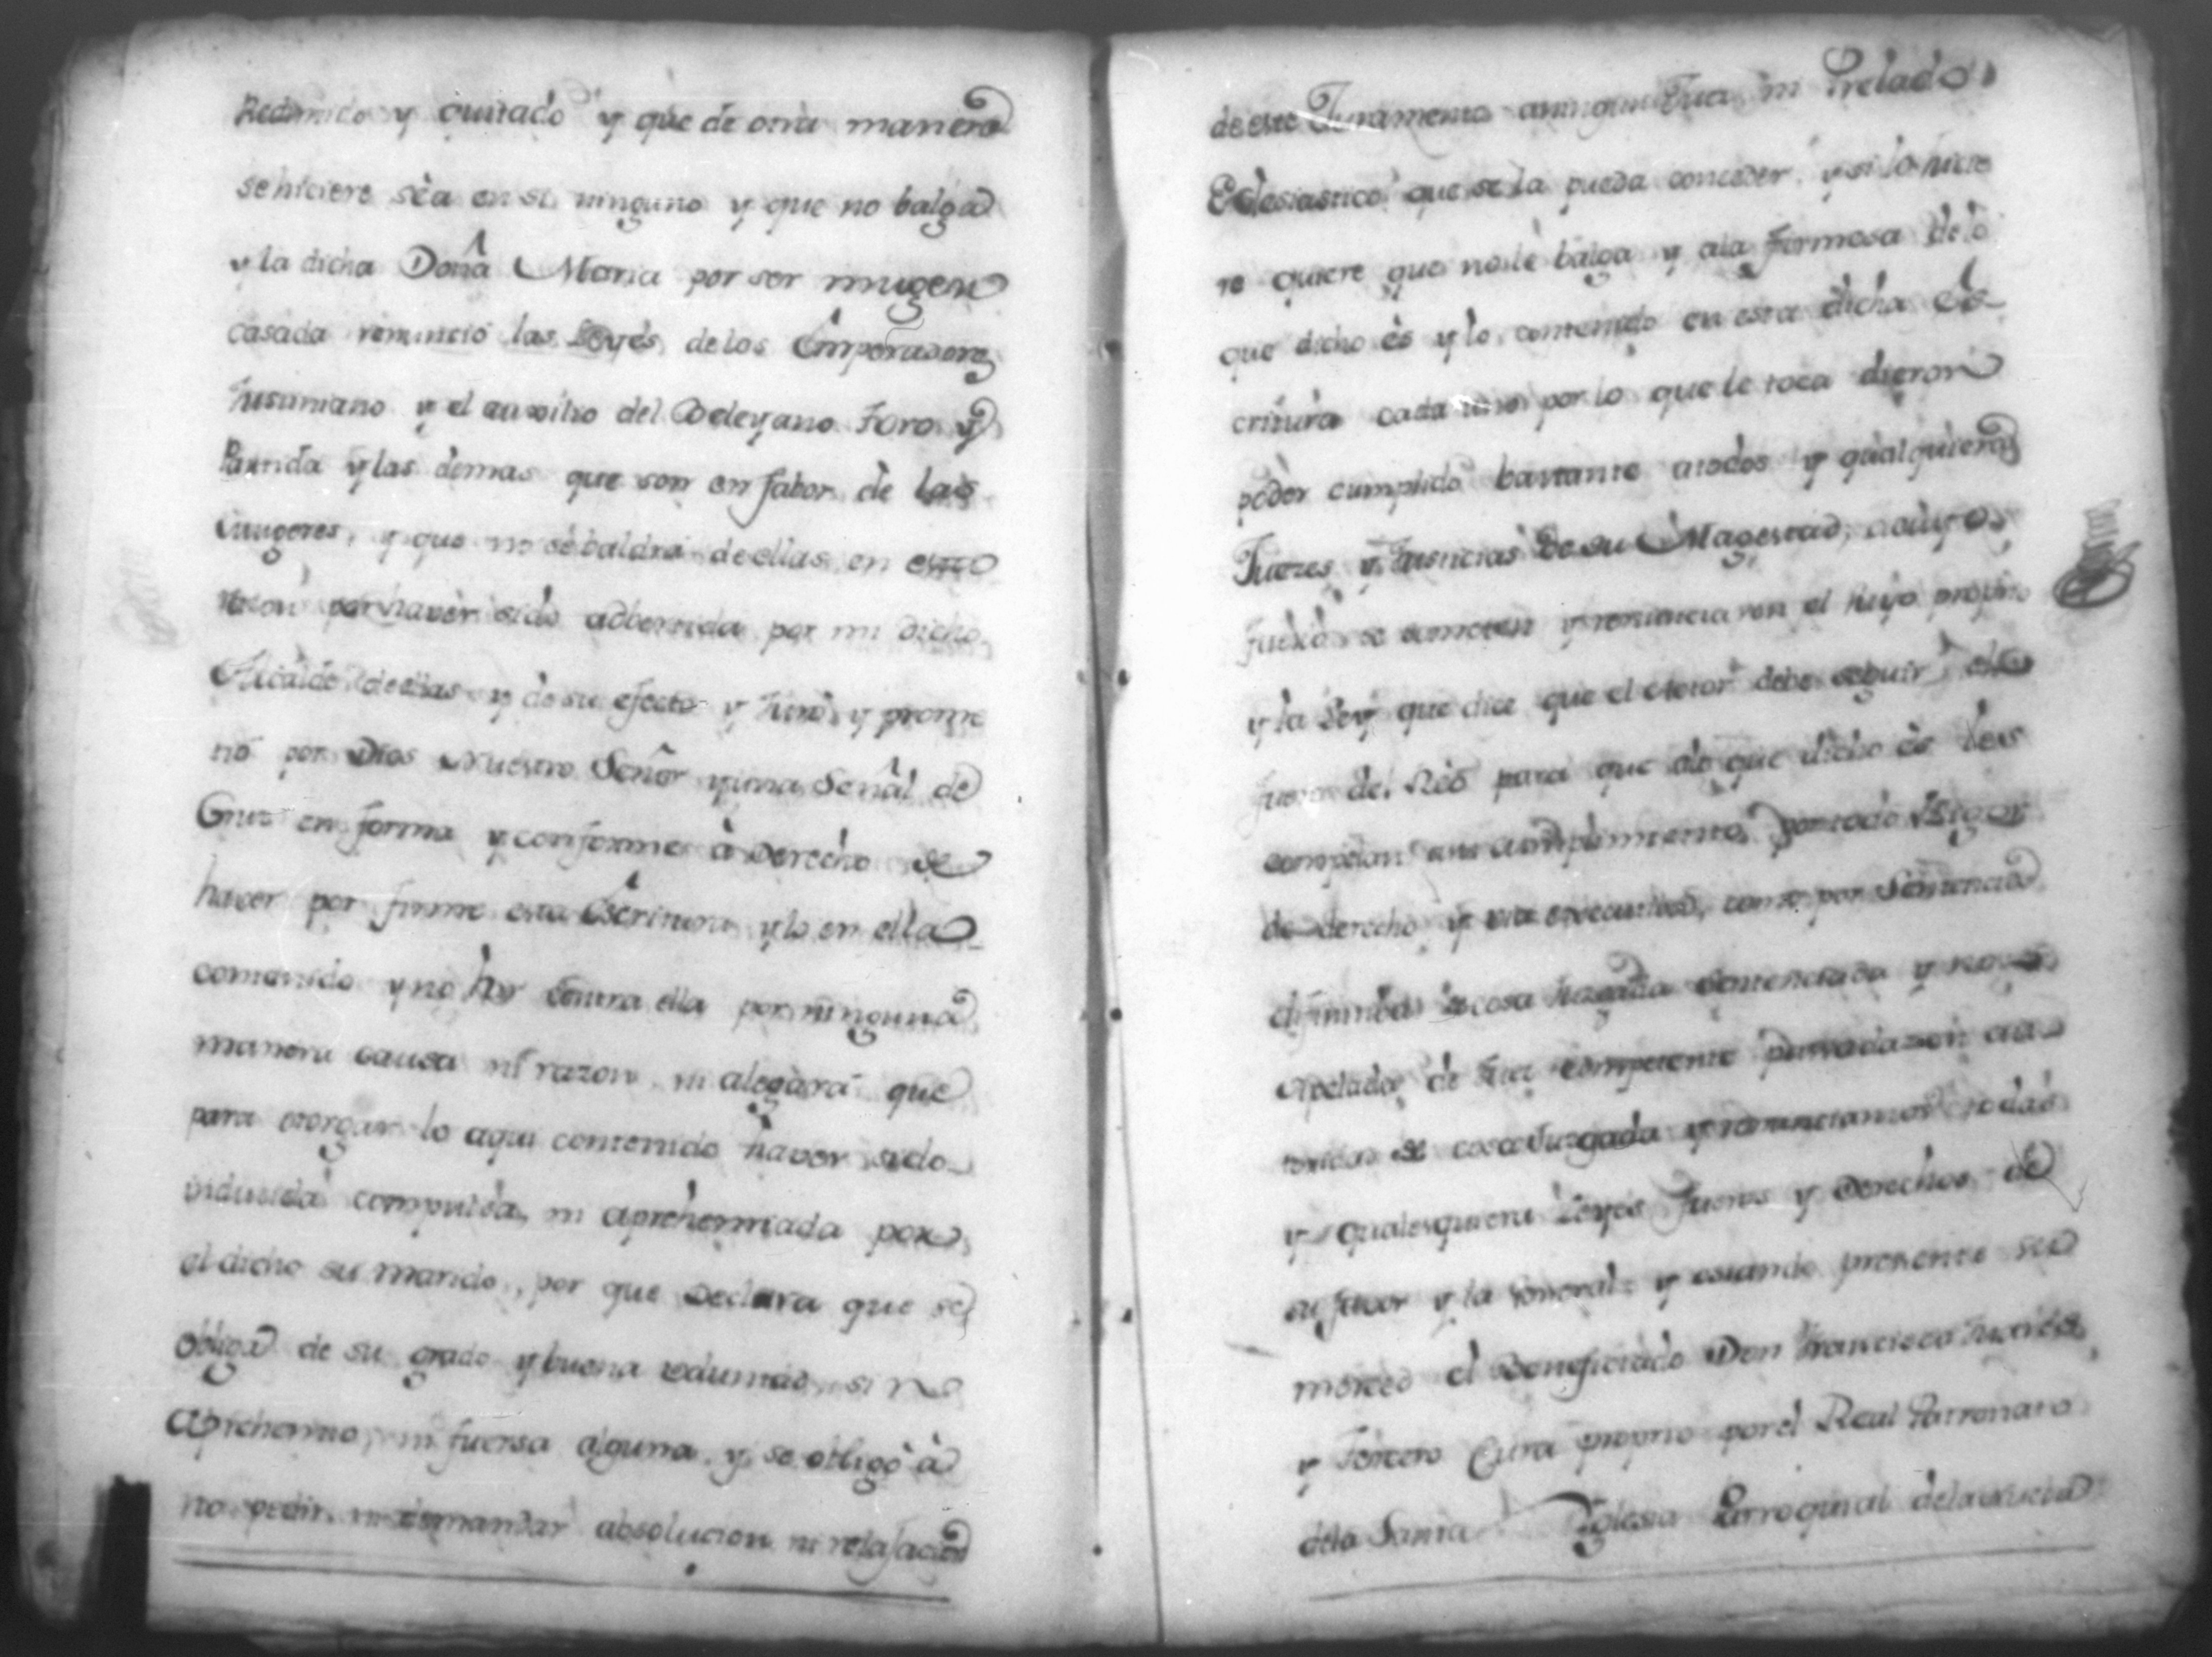 Redimido y quitado y que de otra manera
se hiciere sèa en si ninguno y que no balga
y la dicha Doña Maria por ser muger
casada renunció las Leyes de los Emperadores
Justiniano y el auxilio del Beleyano Foro y
Partida y las demas que son en fabor de las
mugeres, y que no se baldra de ellas en esta
razon por haver sido adbertida por mi dicho
Alcalde de ellas y de su efecto y Juró y prome
tió por Dios Nuestro Señor y una Señal de
Cruz en forma y conforme à Derecho de
haver por firme esta Escritura y lo en ella
contenido y no hir contra ella por ninguna
manera causa ni razon, ni alegàra que
para otorgar lo aqui contenido haver sido
inducida compulsa, ni aprehemiada por
el dicho su marido, por que Declara que se
obliga de su grado y buena voluntad, si no
Aprehemio, ni fuersa alguna, y se obligò à
no pedir, ni demandar absolucion ni relajacion
de este Juramento a ningun Juez, ni Prelado
Eclesiastico que se la pueda conceder, y si lo hicie
re quiere que no le balga y a la firmesa de lo
que dicho ès y lo contenido en esta dicha Es
critura cada uno por lo que le toca dieron
poder cumplido bastante a todos y qualquiera
Juezes y Justicias de su Magestad, a cuyo
fuero se someten y renunciaron el suyo proprio
y la Ley que dice que el Actor debe seguir el
fuero del Reo para que a lo que dicho es les
compelan a su cumplimiento, por todo Rigor
de derecho y via executiva, como por Sentencia
difinitiva de cosa Juzgada Sentenciada y no
Apelada de Juez competente pasada en au
toridad de cosa Juzgada y renunciamos todas
y qualesquiera Leyes fueros y Derechos de
su favor y la general y estando presente su
merced el Beneficiado Don Francisco
y Tercero Cura proprio por el Real Patronato
de la Santa Iglesia Parroquial de la